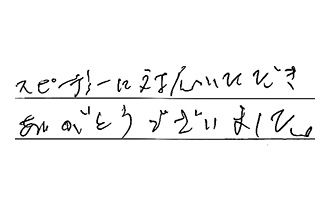 スピーディーに対応いただき
ありがとうございました。